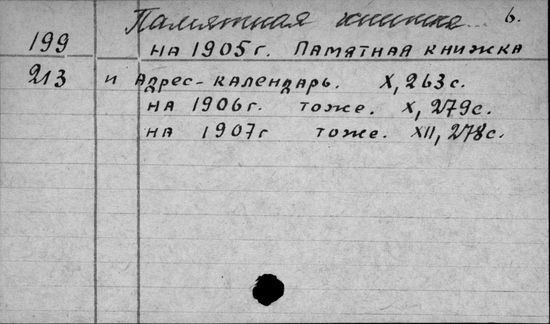 Памятная книжка 6.
199 на 1905 г. Памятная книжка
213 и Адрес-календарь. X, 263 с.
на 1906 г. тоже. X, 279 с.
на 1907 г тоже. XII, 278 с.